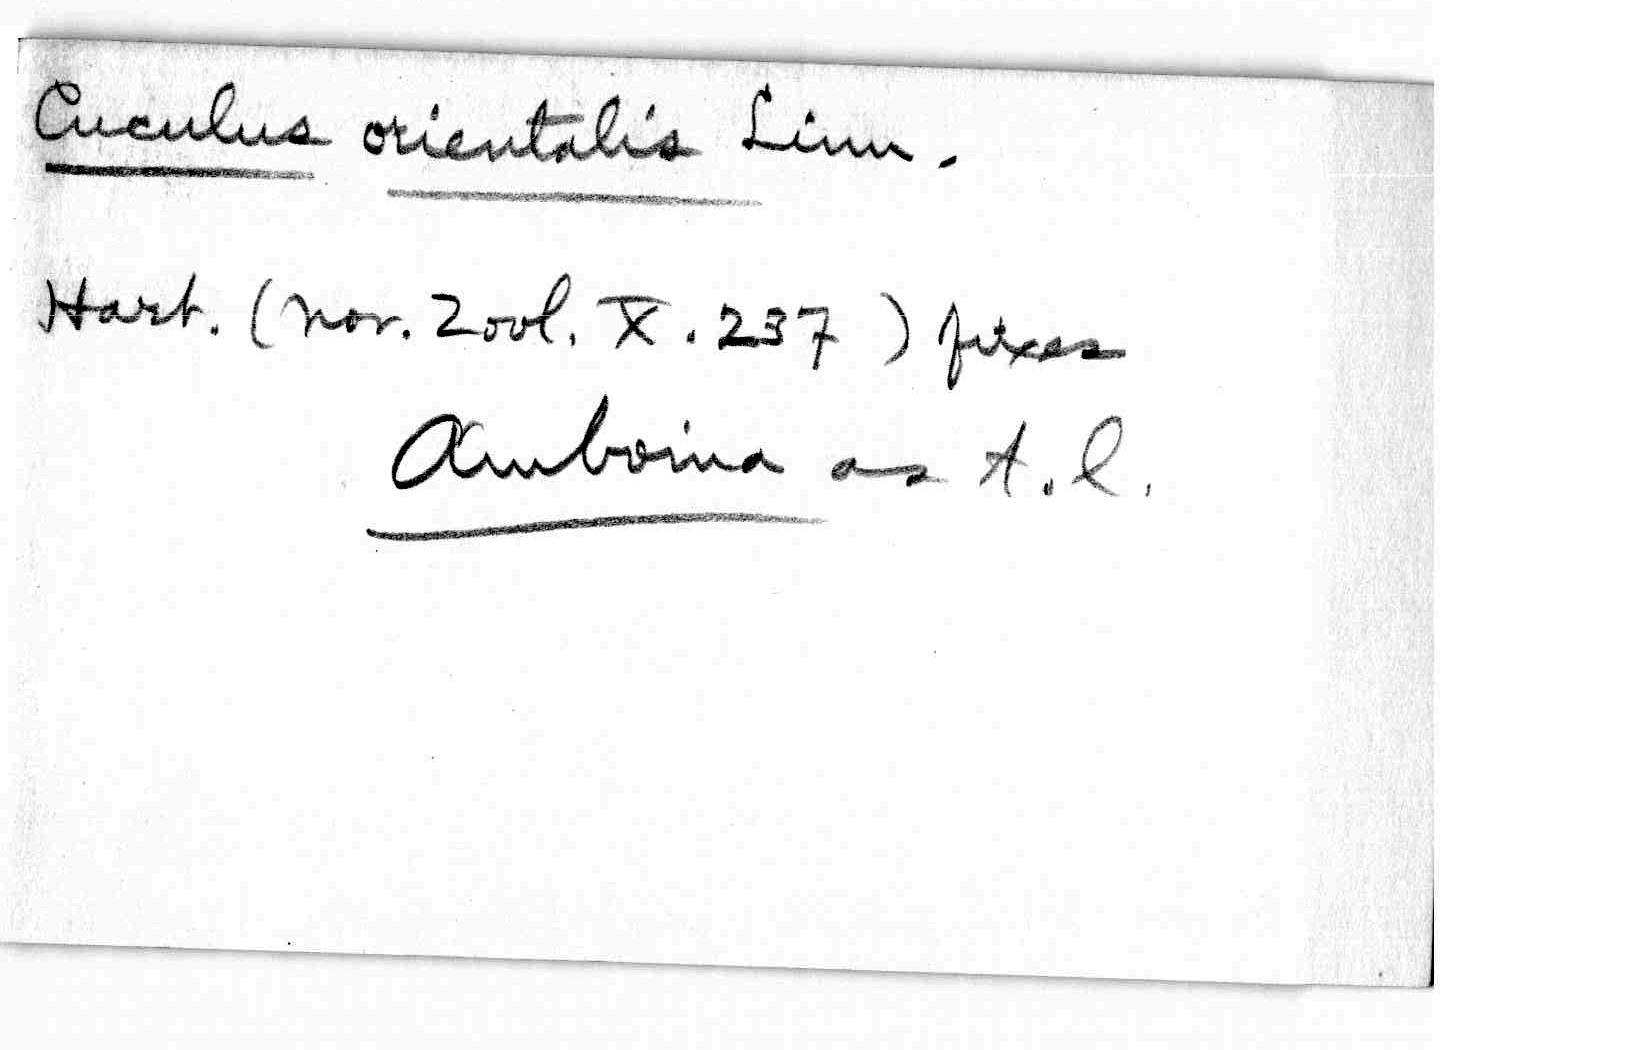 Cuculus orientalis Linn.
Hart. (Nov. Zool. X. 237) fixes
Amboina as t.l.